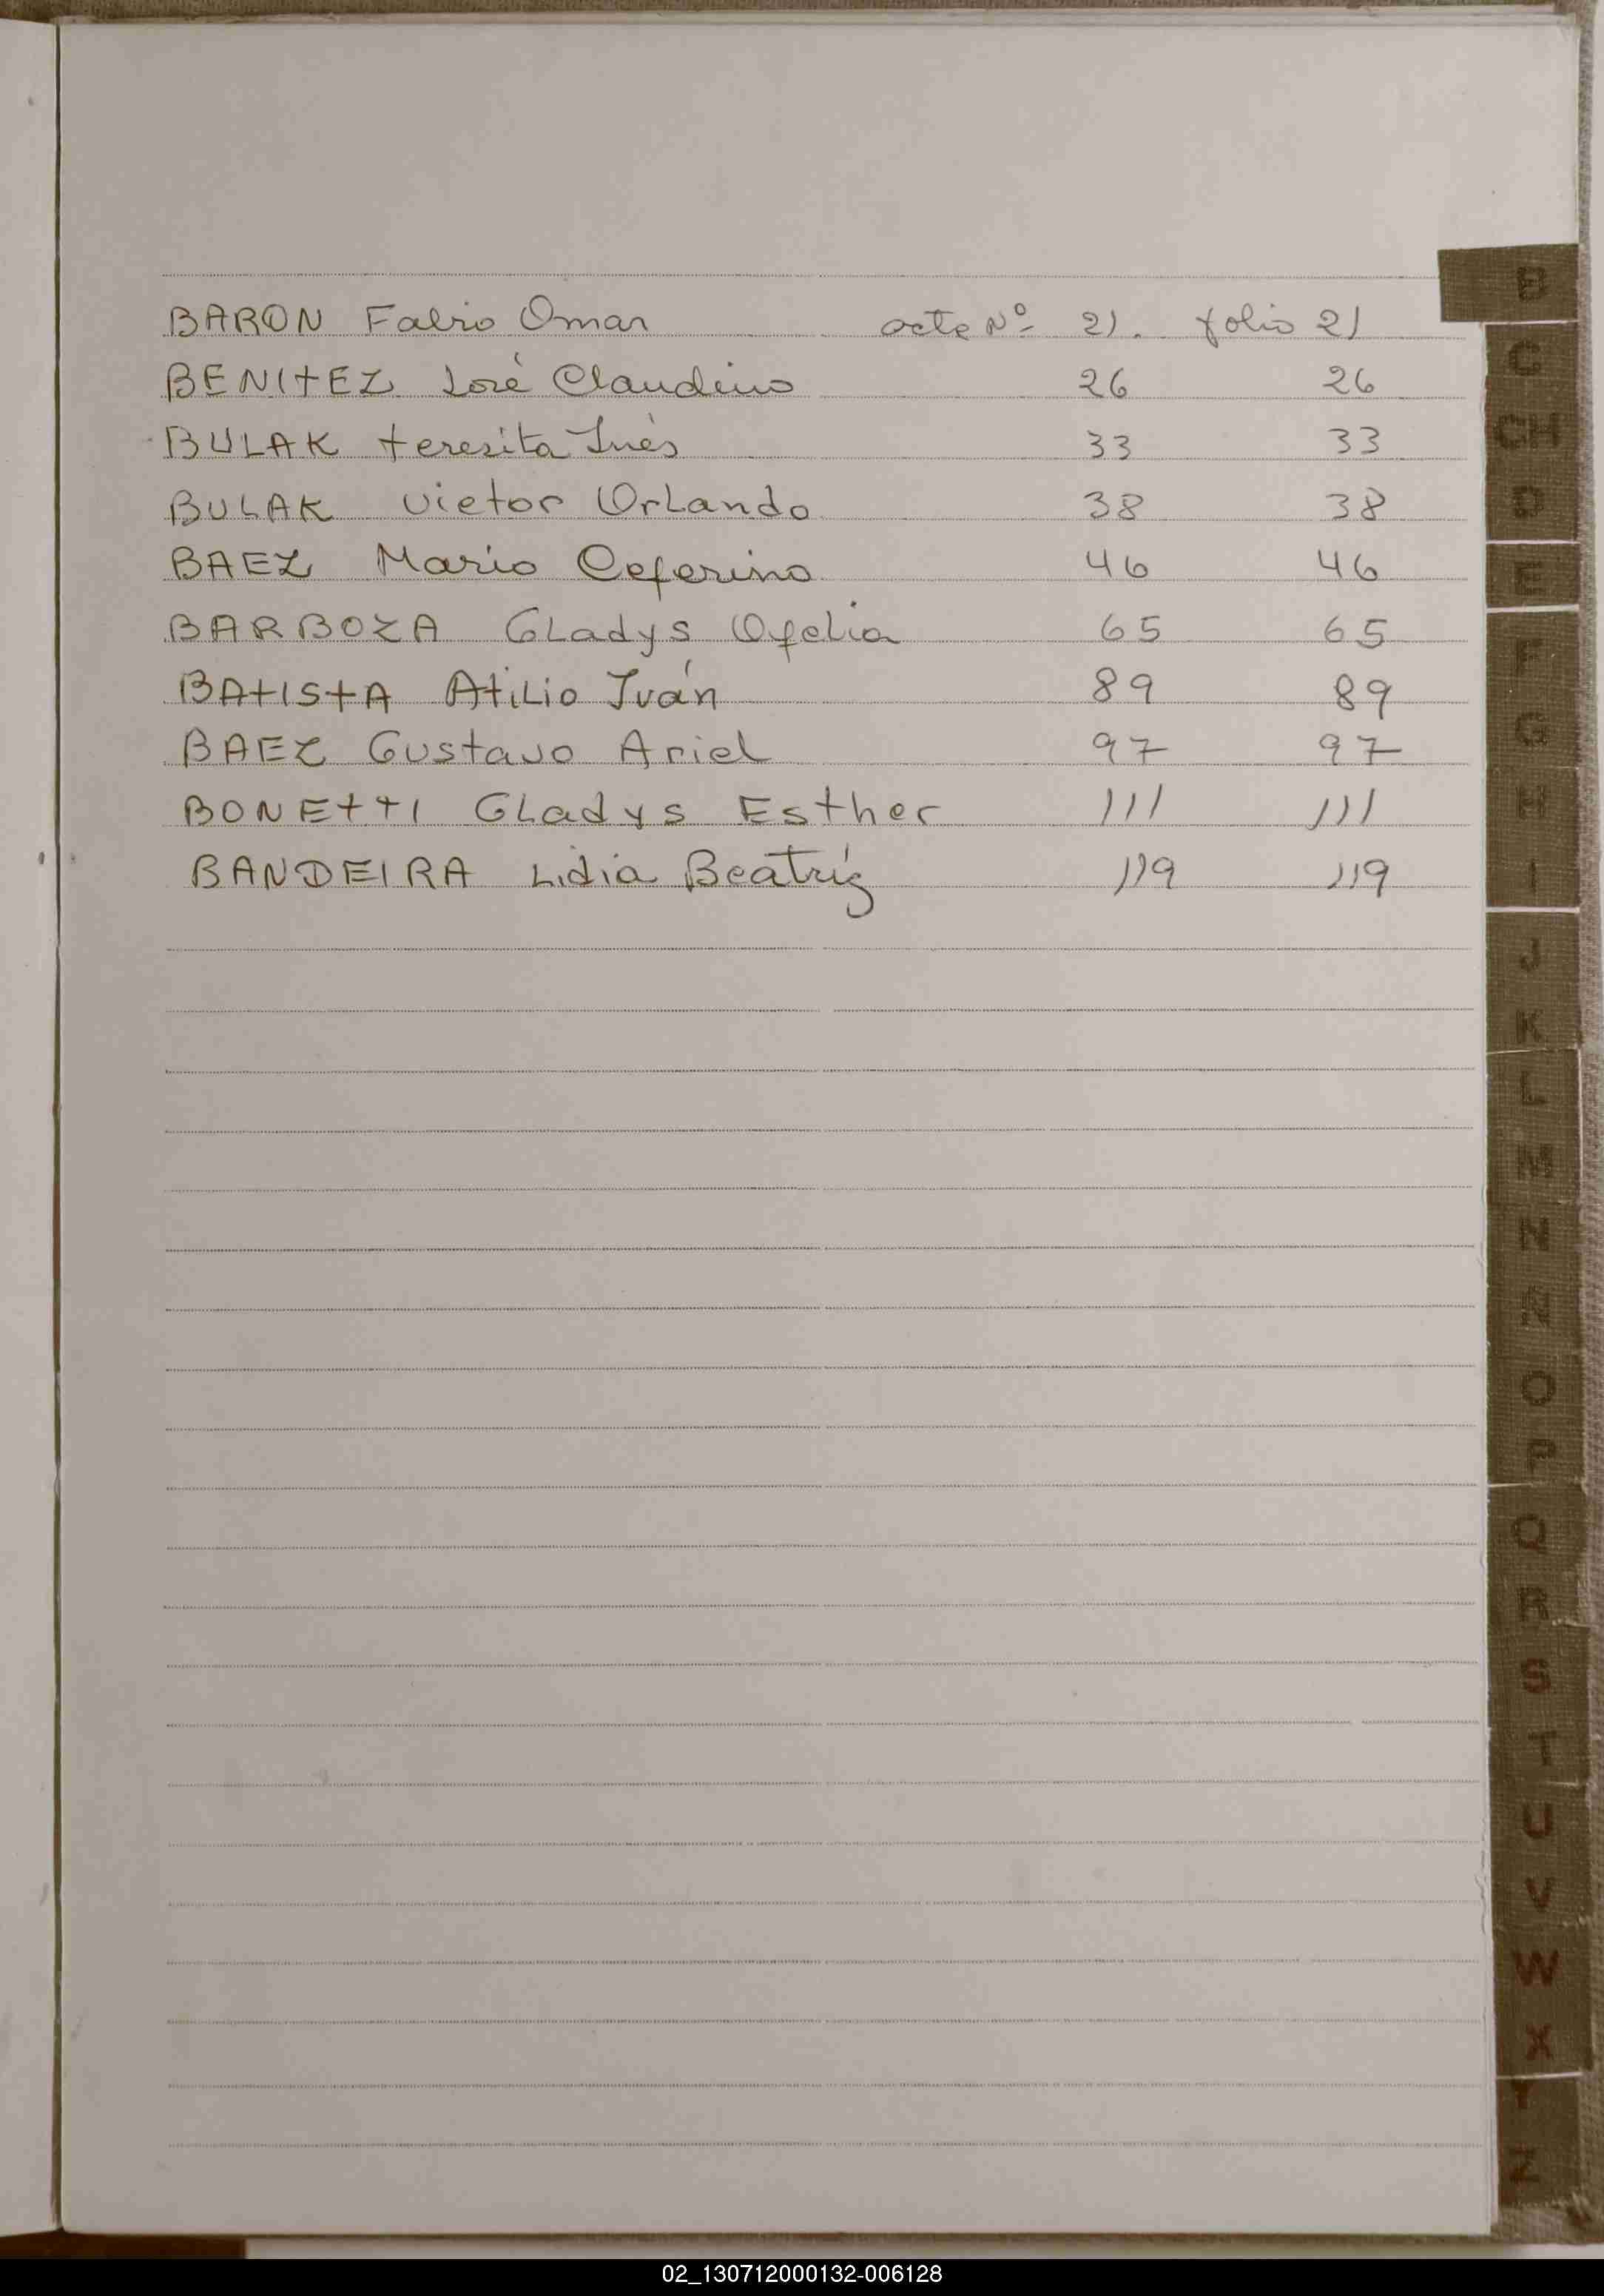 BARON Fabio Omar acta Nº 21. folio 21
BENITEZ José Claudino 26 26
BULAK teresita Inés 33 33
BULAK Victor Orlando 38 38
BAEZ Mario Ceferino 46 46
BARBOZA Gladys Ofelia 65 65
BATISTA Atilio Iván 89 89
BAEZ Gustavo Ariel 97 97
BONETTI Gladys Esther 111 111
BANDEIRA Lidia Beatríz 119 119
B
C
CH
D
E
F
G
H
I
J
K
L
M
N
Ñ
O
P
Q
R
S
T
U
V
W
X
Y
Z
02_130712000132-006128